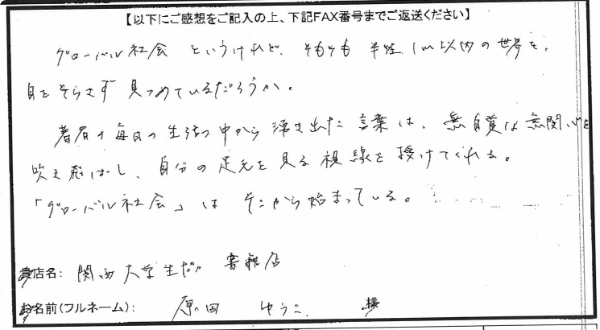 【以下にご感想をご記入の上、下記FAX番号までご返送ください】
グローバル社会 というけれど、そもそも 半径1m以内の世界を、
目をそらさず 見つめているだろうか。
著者の毎日の生活の中から湧き出た言葉は、無自覚な無関心を
吹き飛ばし、自分の足元を見る視線を授けてくれる。
「グローバル社会」は そこから始まっている。
貴店名: 関西大学生協 書籍店
お名前(フルネーム): 原田 ゆうこ 様